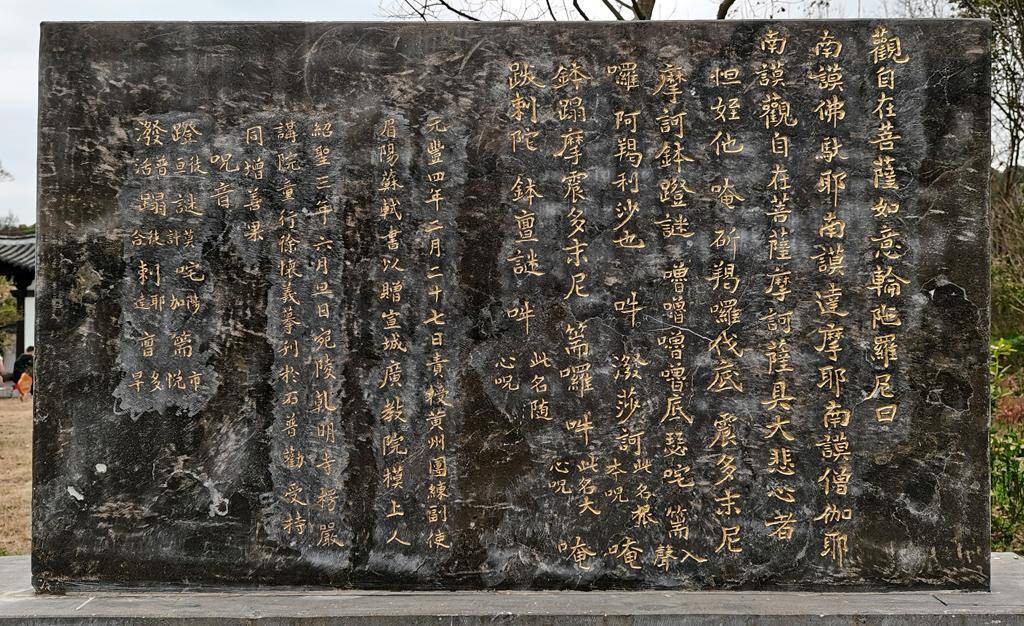 觀自在菩薩如意輪陁羅尼曰
南謨佛馱耶南謨達摩耶南謨僧伽耶
南謨觀自在菩薩摩訶薩具大悲心者
怛姪他 唵 斫羯羅伐底 震多末尼
摩訶鉢蹬謎 嚕嚕嚕嚕底瑟咤 篅入聲
囉 阿羯利沙也 吽 潑莎訶 此名根本呪 唵
鉢蹋摩震多末尼 篅囉 吽 此名大心呪 唵
跋剌陀 鉢亶謎 吽 此名随心呪
元豐四年二月二十七日責授黃州團練副使
眉陽蘇軾書以贈宣城廣教院模上人
紹聖三年六月旦日宛陵乹明寺楞嚴
講院童行徐懷義摹刋於石普勸受持
同增善果
呪音
蹬徒亘 謎莫計 咤陽加 篅市沇
潑普活 蹋徒合 剌耶達 亶多旱